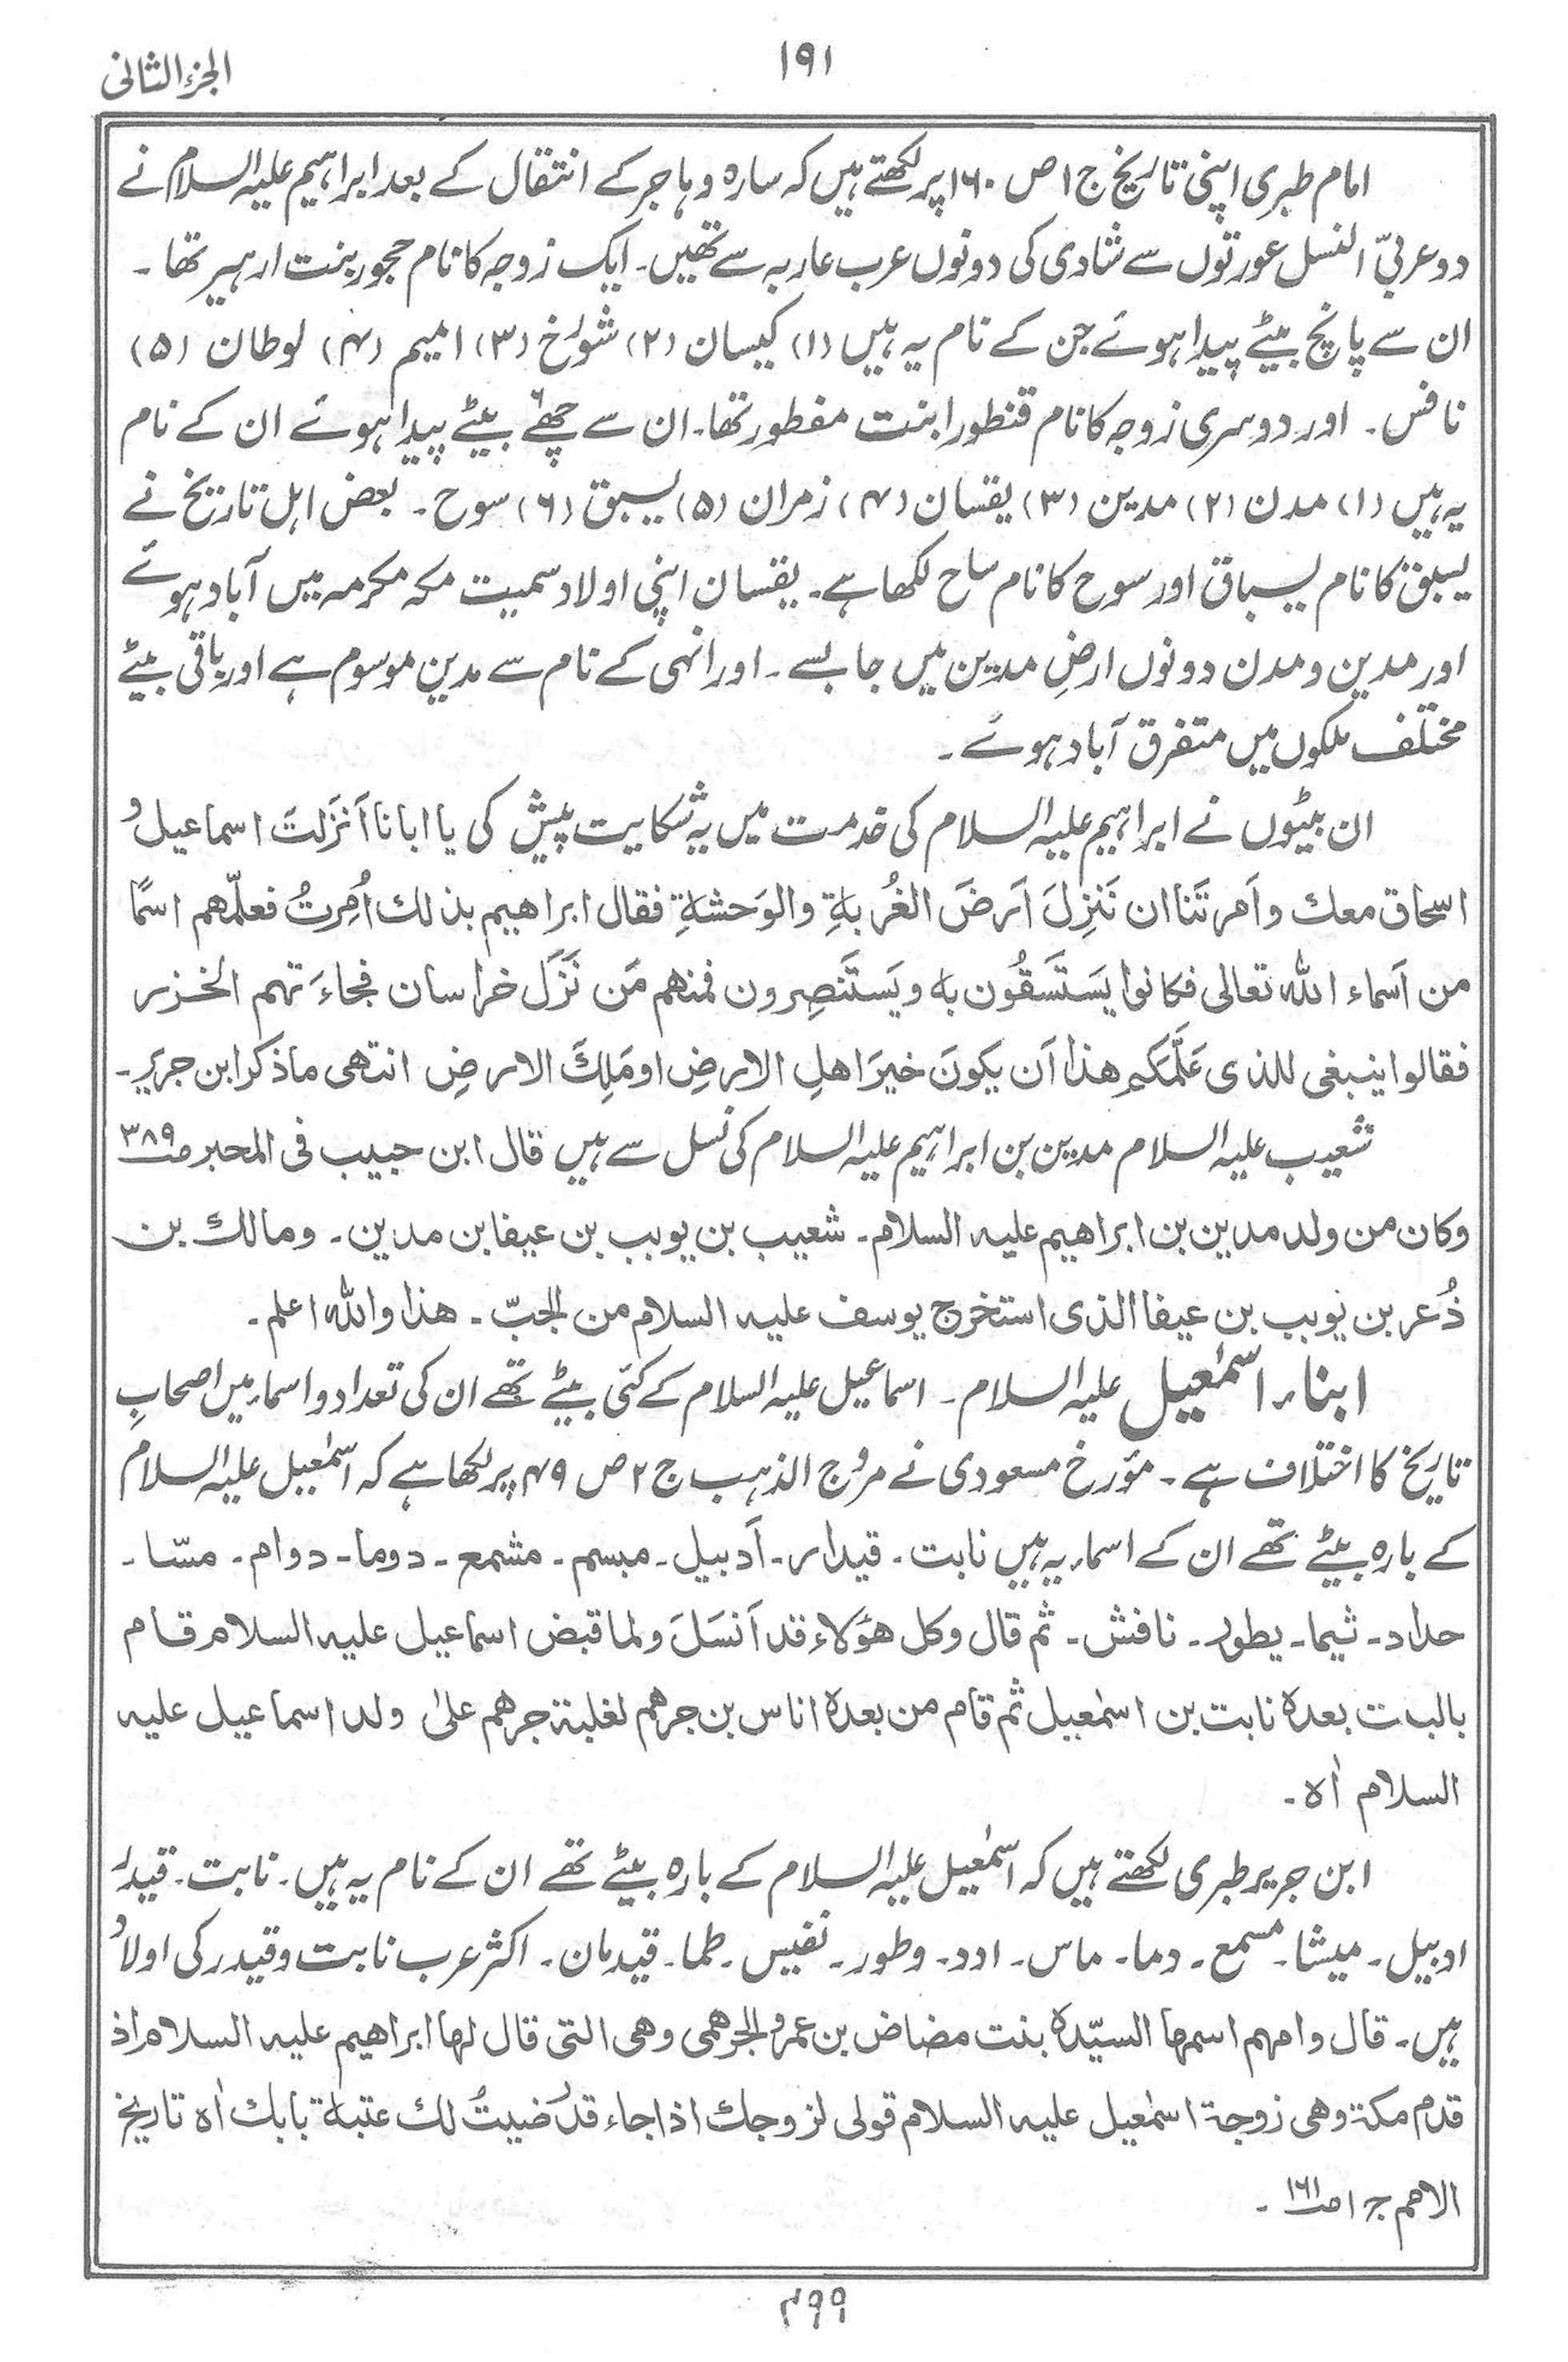 الجزء الثانی
۱۹۱
امام طبری اپنی تاریخ ج ۱ ص ۱۶۰ پر لکھتے ہیں کہ سارہ و ہاجر کے انتقال کے بعد ابراہیم علیہ السلام نے
دو عربیّ النسل عورتوں سے شادی کی دونوں عرب عاربہ سے تھیں۔ ایک زوجہ کا نام حجور بنت ارہیر تھا۔
ان سے پانچ بیٹے پیدا ہوئے جن کے نام یہ ہیں (۱) کیسان (۲) شورخ (۳) امیم (۴) لوطان (۵)
نافس۔ اور دوسری زوجہ کا نام قنطورا بنت مفطور تھا۔ ان سے چھے بیٹے پیدا ہوئے ان کے نام
یہ ہیں (۱) مدن (۲) مدین (۳) یقسان (۴) زمران (۵) یسبق (۶) سوح۔ بعض اہل تاریخ نے
یسبق کا نام یسباق اور سوح کا نام ساح لکھا ہے۔ یقسان اپنی اولاد سمیت مکہ مکرمہ میں آباد ہوئے
اور مدین و مدن دونوں ارضِ مدین میں جا بسے۔ اور انہی کے نام سے مدین موسوم ہے اور باقی بیٹے
مختلف ملکوں میں متفرق آباد ہوئے۔
ان بیٹوں نے ابراہیم علیہ السلام کی خدمت میں یہ شکایت پیش کی یا ابانا اَنزَلتَ اسماعیل و
اسحاق معك واَمرتَنا ان نَنزِلَ اَرضَ الغُربةِ والوَحشةِ فقال ابراهیم بذلك اُمِرتُ فعلّمهم اسمًا
من اَسماء الله تعالی فکانوا یَستَسقُون به ویَستَنصِرون فمنهم مَن نَزَل خراسان فجاءَتهم الخزر
فقالوا ینبغی للذی عَلَّمَکم هذا اَن یکونَ خیرَ اهلِ الارضِ او مَلِكَ الارضِ انتهی ما ذکر ابن جریر۔
شعیب علیہ السلام مدین بن ابراہیم علیہ السلام کی نسل سے ہیں قال ابن حبیب فی المحبر ص۳۸۹
وکان من ولد مدین بن ابراهیم علیه السلام۔ شعیب بن یوبب بن عیفا بن مدین۔ ومالك بن
ذُعر بن یوبب بن عیفا الذی استخرج یوسف علیه السلام من الجبّ۔ هذا والله اعلم۔
ابناء اسمٰعیل علیہ السلام۔ اسماعیل علیہ السلام کے کئی بیٹے تھے ان کی تعداد و اسماء میں اصحابِ
تاریخ کا اختلاف ہے۔ مؤرخ مسعودی نے مروج الذہب ج ۲ ص ۴۹ پر لکھا ہے کہ اسمٰعیل علیہ السلام
کے بارہ بیٹے تھے ان کے اسماء یہ ہیں نابت۔ قیدار۔ اَدبیل۔ مبسم۔ مشمع۔ دوما۔ دوام۔ مسّا۔
حداد۔ ثیما۔ یطور۔ نافش۔ ثم قال وکل هؤلاء قد اَنسَلَ ولما قبض اسماعیل علیه السلام قام
بالبیت بعدہ نابت بن اسمٰعیل ثم قام من بعدہ اناس بن جرهم لغلبة جرهم علیٰ ولد اسماعیل علیه
السلام اٰه۔
ابن جریر طبری لکھتے ہیں کہ اسمٰعیل علیہ السلام کے بارہ بیٹے تھے ان کے نام یہ ہیں۔ نابت۔ قیدر
ادبیل۔ میشا۔ مسمع۔ دما۔ ماس۔ ادد۔ وطور۔ نفیس۔ طما۔ قیدمان۔ اکثر عرب نابت و قیدر کی اولاد
ہیں۔ قال وامهم اسمها السیّدة بنت مضاض بن عمرو الجرهمی وهی التی قال لها ابراهیم علیه السلام اذ
قدم مكة وهی زوجة اسمٰعیل علیه السلام قولی لزوجك اذا جاء قد رضیتُ لك عتبة بابك اٰه تاریخ
الامم ج ۱ ص۱۶۱۔
۴۹۹